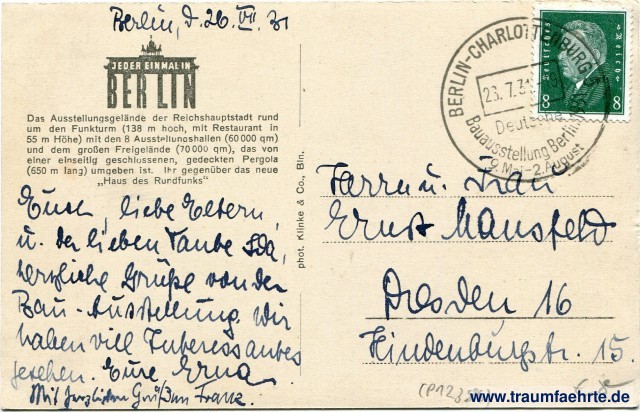 Berlin, d. 26. VII. 31
JEDER EINMAL IN
BERLIN
Das Ausstellungsgelände der Reichshauptstadt rund
um den Funkturm (138 m hoch, mit Restaurant in
55 m Höhe) mit den 8 Ausstellungshallen (60 000 qm)
und dem großen Freigelände (70 000 qm), das von
einer einseitig geschlossenen, gedeckten Pergola
(650 m lang) umgeben ist. Ihr gegenüber das neue
„Haus des Rundfunks“
Euch, liebe Eltern,
u. der lieben Tante Ida,
herzliche Grüße von der
Bau-Ausstellung. Wir
haben viel Interessantes
gesehen. Eure Erna
Mit herzlichen Grüßen Franz.
phot. Klinke & Co., Bln.
BERLIN-CHARLOTTENBURG
Deutsche
Bauausstellung Berlin
9. Mai-2. August
Deutsches Reich
8 8
Herrn u. Frau
Ernst Mansfeld
Dresden 16
Hindenburgstr. 15
www.traumfaehrte.de